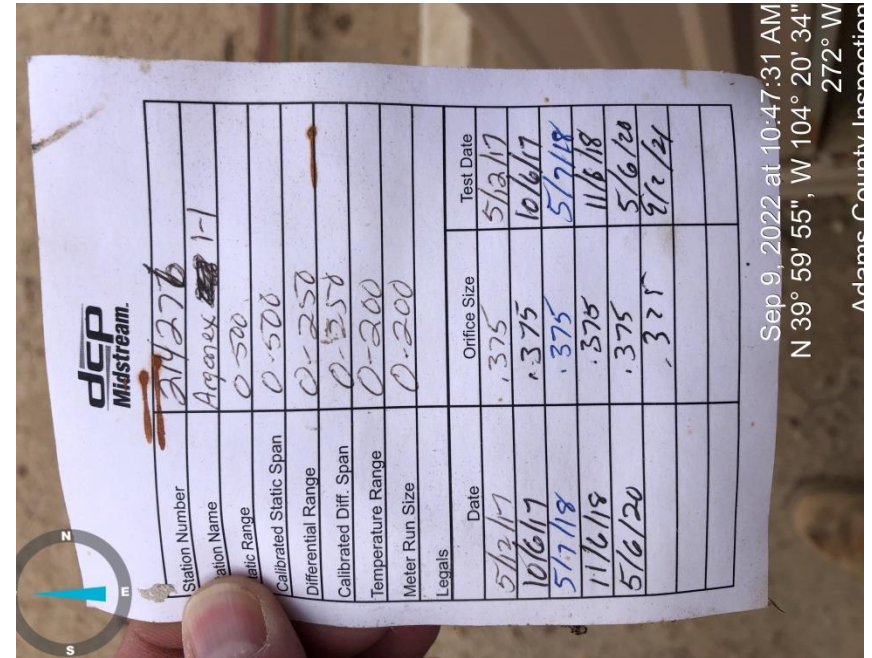 dcp
Midstream.
Station Number 214276
ation Name 1-1
atic Range 0-500
Calibrated Static Span 0-500
Differential Range 0-250
Calibrated Diff. Span 0-250
Temperature Range 0-200
Meter Run Size 0-200
Legals
Date Orifice Size Test Date
5/12/17 .375 5/12/17
10/6/17 .375 10/6/17
5/7/18 .375 5/7/18
11/6/18 .375 11/6/18
5/6/20 .375 5/6/20
.375 9/2/21
Sep 9, 2022 at 10:47:31 AM
N 39° 59' 55", W 104° 20' 34"
272° W
Adams County Inspection
N
E
S